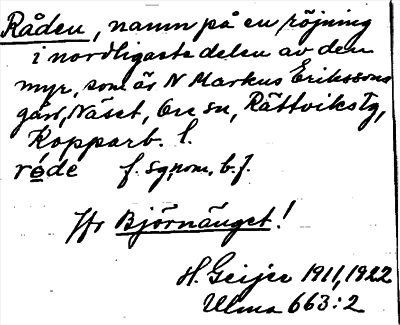 Råden, namn på en röjning
i nordligaste delen av den
myr, som är N Markus Erikssons
gård, Näset, Ore sn, Rättviks tg,
Kopparb. l.
røde f. sg. nom. b. f.
Jfr Björnänget!
H. Geijer 1911, 1922
Ulma 663:2